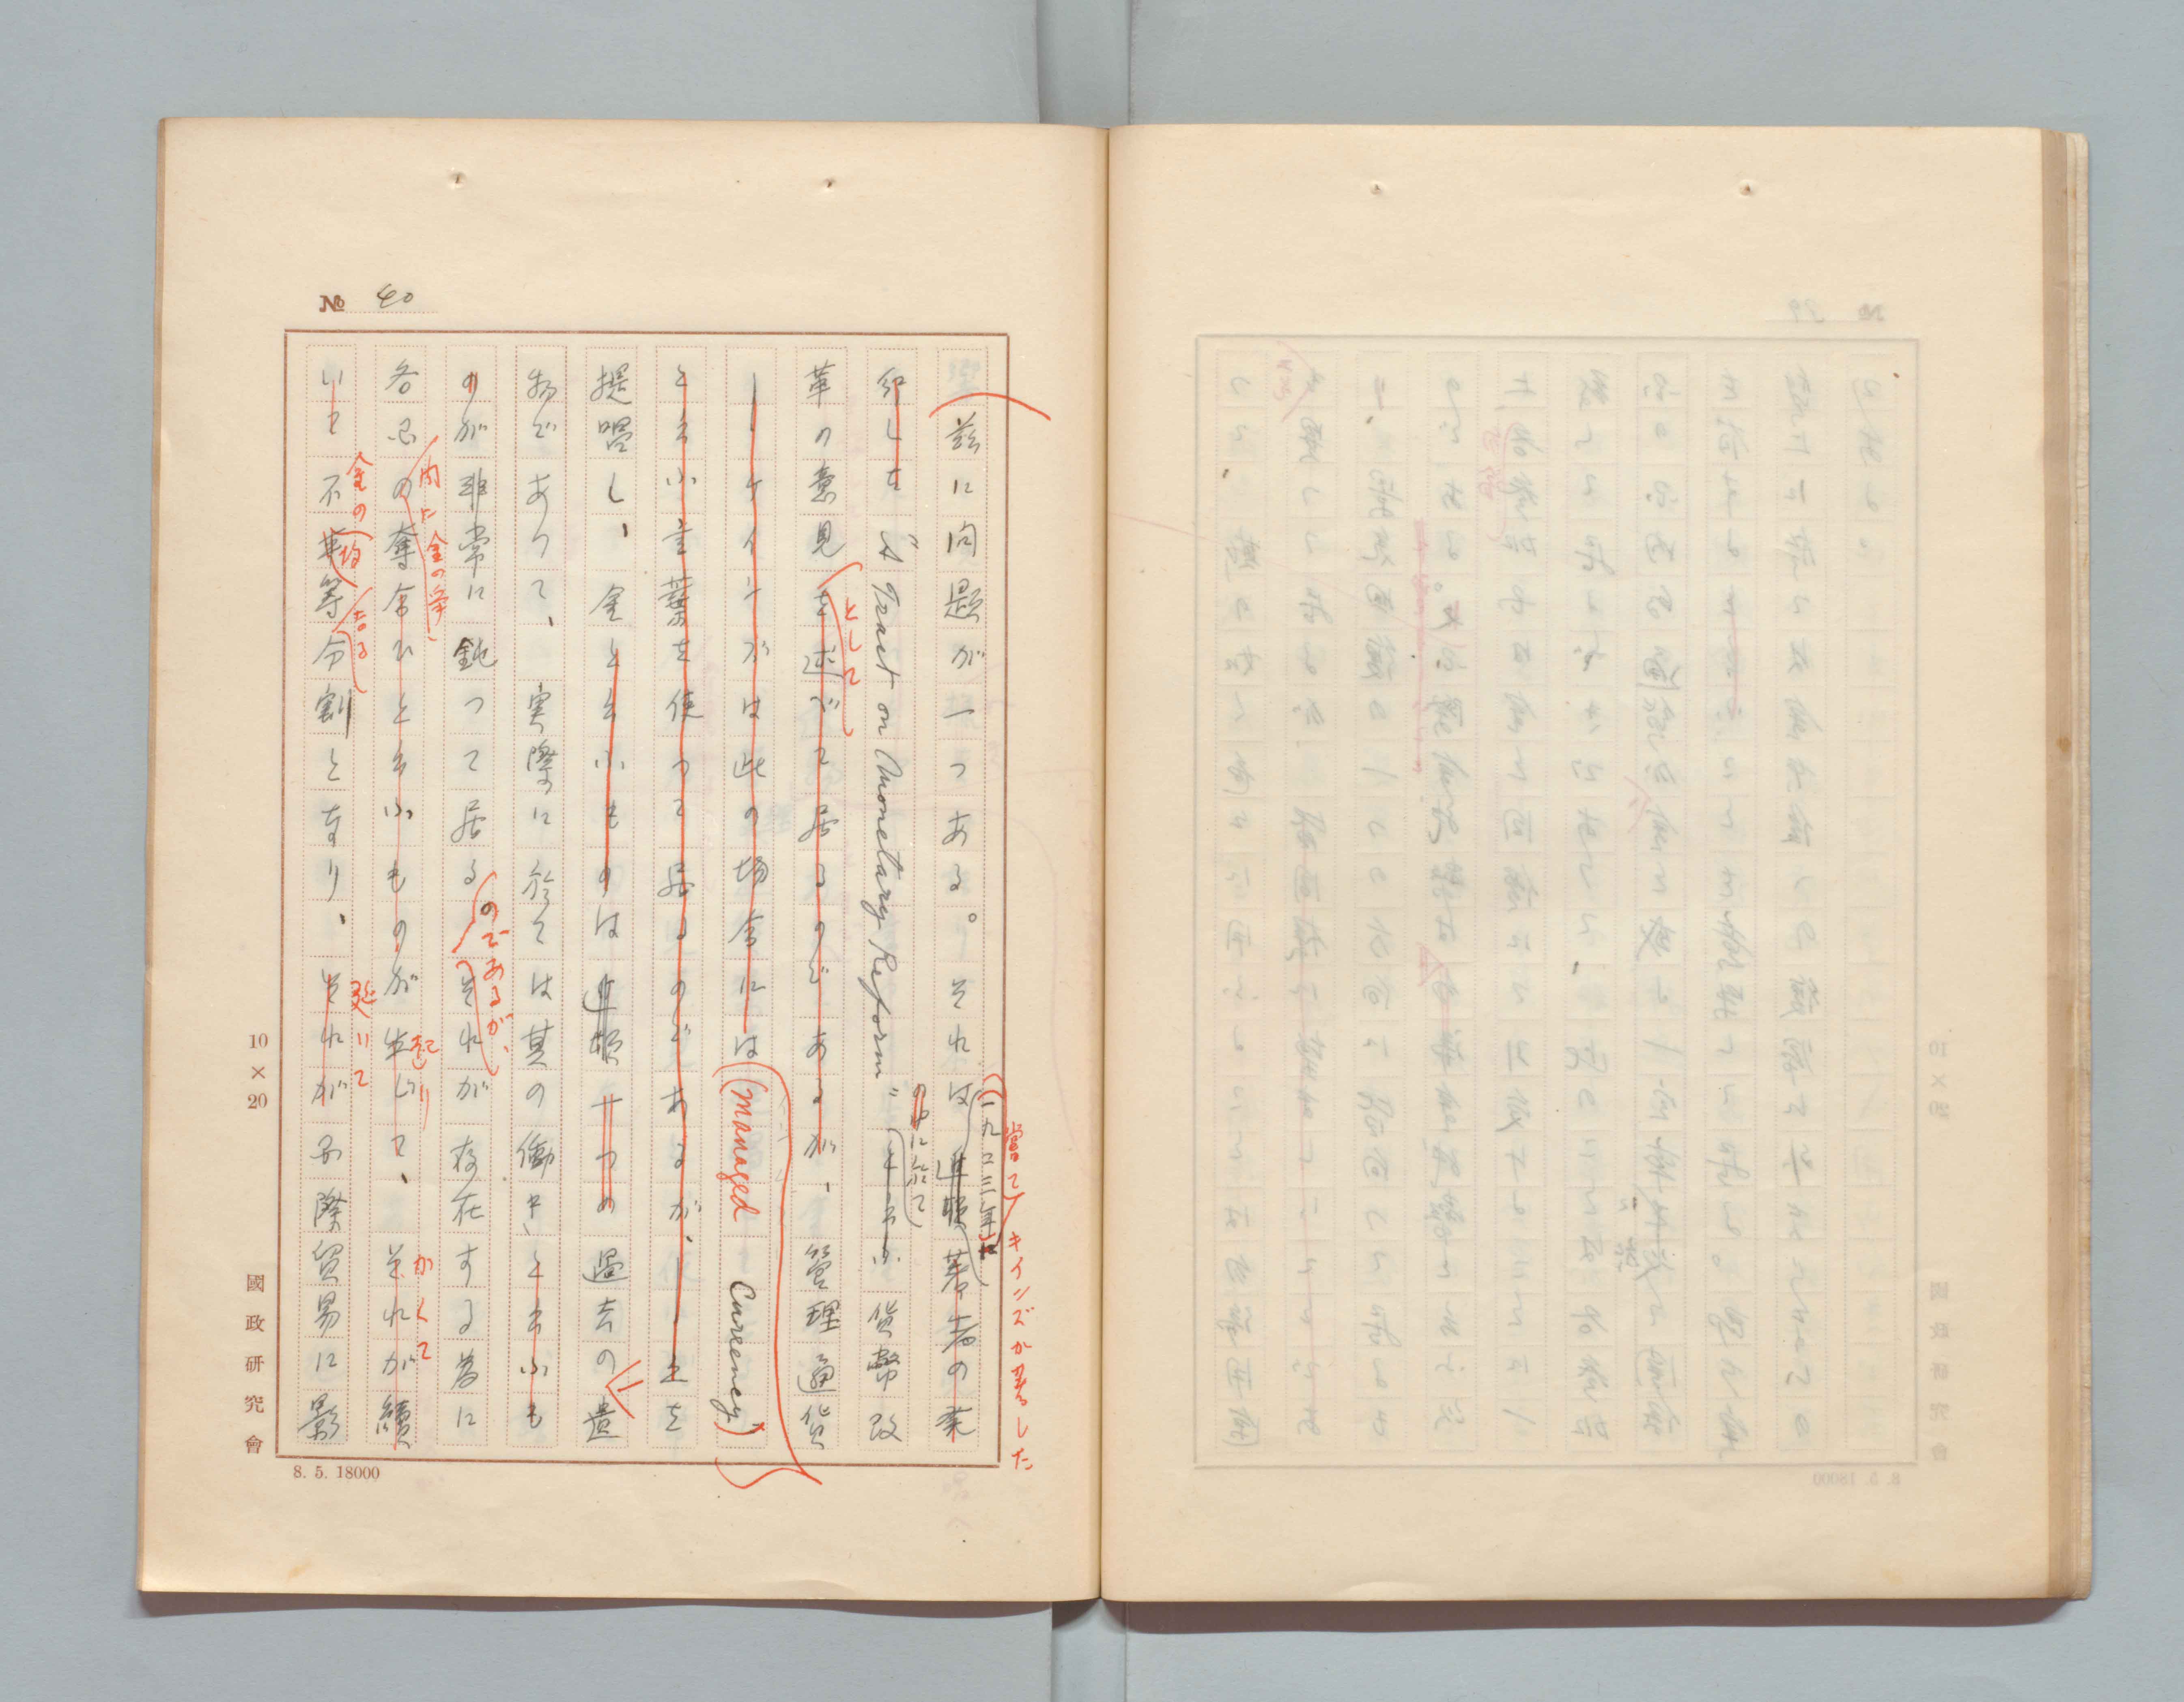 № 40
茲に問題が一つある。それは進歩著者の英
(一九二三年に
嘗て
キインズが著した
"A Tract on Monetary Reform"と云ふ貨幣改
の中に於て
革の意見を述べて居るのであるが、管理通貨
として
ーケインズは此の場合には(managed Currency)
と云ふ言葉を使つて居るのであるが、ー之を
提唱し、金と云ふものは
過去の遺
物であつて、実際に於ては其の働きと云ふも
のが非常に鈍つて居る
のであるが、
それが存在する為に
各国の奪合ひと云ふものが生じて、それが續
内に金の争
起り
かくて
いて不
等分割となり、それが国際貿易に影
金の
均
なる
延いて
10×20
國政研究會
8. 5. 18000